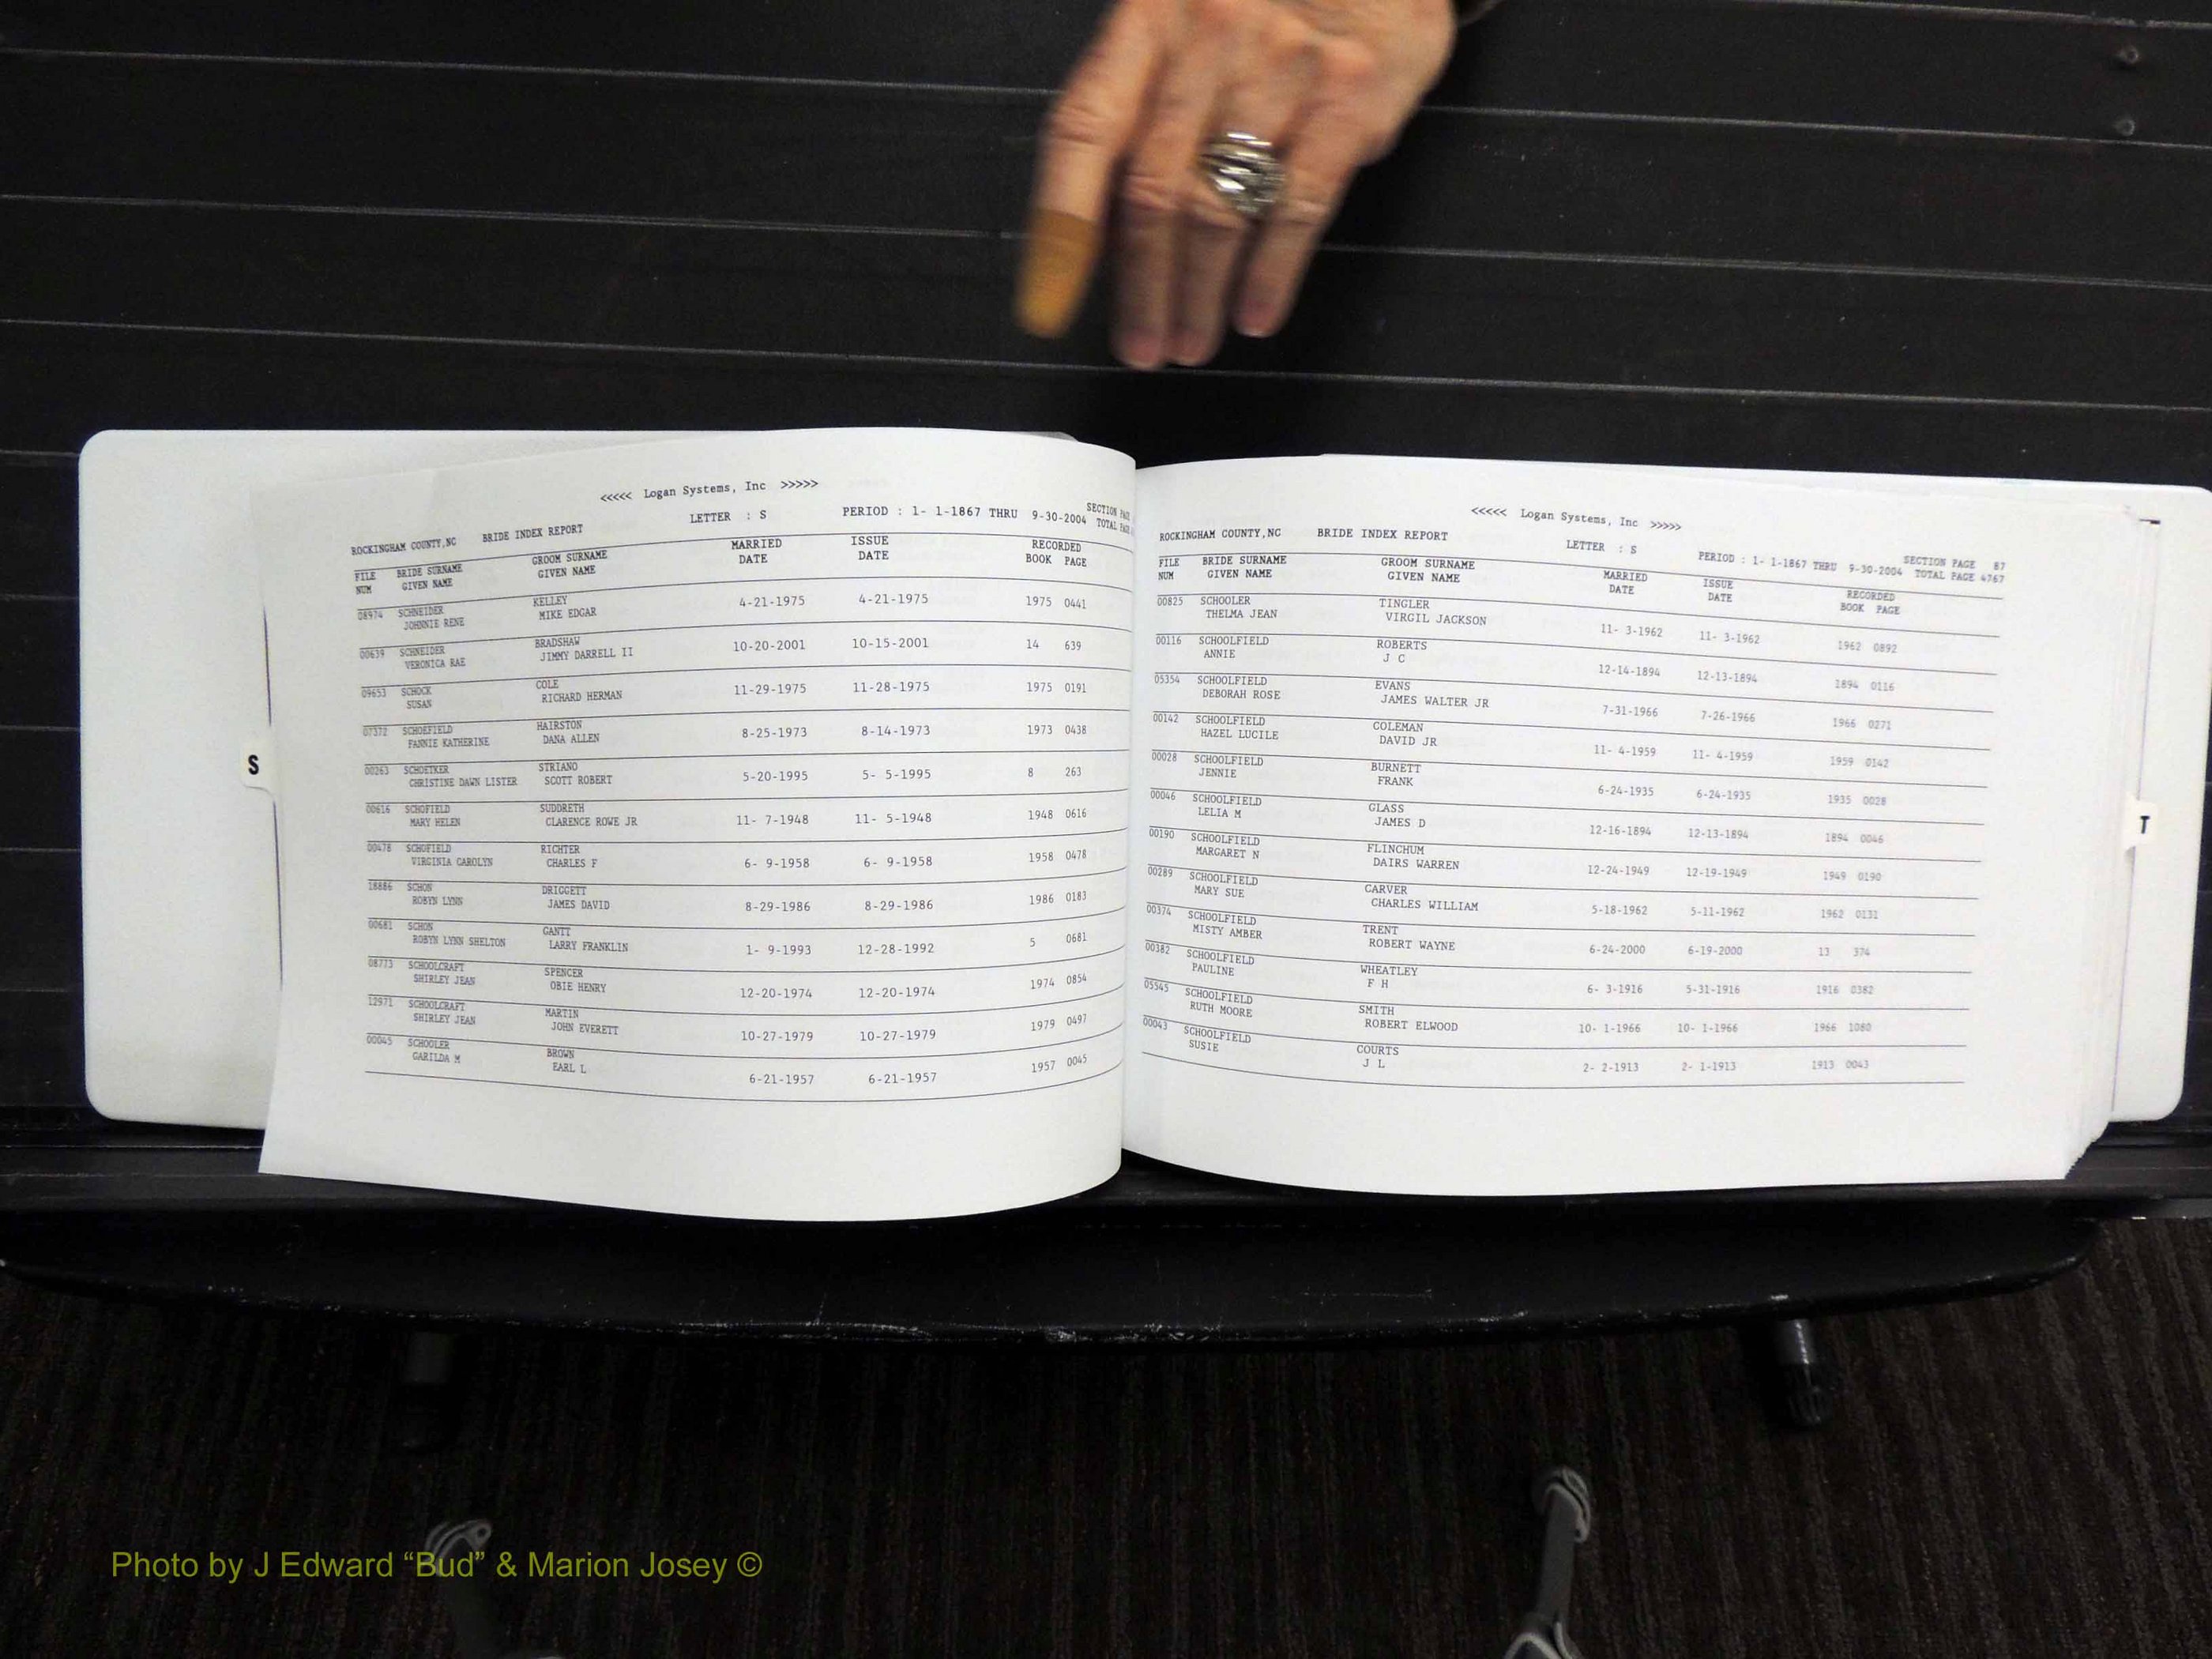 <<<<< Logan Systems, Inc >>>>>
ROCKINGHAM COUNTY,NC BRIDE INDEX REPORT LETTER : S PERIOD : 1- 1-1867 THRU 9-30-2004 SECTION
TOTAL
FILE BRIDE SURNAME GROOM SURNAME MARRIED ISSUE RECORDED
NUM GIVEN NAME GIVEN NAME DATE DATE BOOK PAGE
08974 SCHNEIDER KELLEY 4-21-1975 4-21-1975 1975 0441
JOHNNIE RENE MIKE EDGAR
00639 SCHNEIDER BRADSHAW 10-20-2001 10-15-2001 14 639
VERONICA RAE JIMMY DARRELL II
09653 SCHOCK COLE 11-29-1975 11-28-1975 1975 0191
SUSAN RICHARD HERMAN
07372 SCHOEFIELD HAIRSTON 8-25-1973 8-14-1973 1973 0438
FANNIE KATHERINE DANA ALLEN
00263 SCHOETKER STRIANO 5-20-1995 5- 5-1995 8 263
CHRISTINE DAWN LISTER SCOTT ROBERT
00616 SCHOFIELD SUDDRETH 11- 7-1948 11- 5-1948 1948 0616
MARY HELEN CLARENCE ROWE JR
00478 SCHOFIELD RICHTER 6- 9-1958 6- 9-1958 1958 0478
VIRGINIA CAROLYN CHARLES F
18886 SCHON DRIGGETT 8-29-1986 8-29-1986 1986 0183
ROBYN LYNN JAMES DAVID
00681 SCHON GANTT 1- 9-1993 12-28-1992 5 0681
ROBYN LYNN SHELTON LARRY FRANKLIN
08773 SCHOOLCRAFT SPENCER 12-20-1974 12-20-1974 1974 0854
SHIRLEY JEAN OBIE HENRY
12971 SCHOOLCRAFT MARTIN 10-27-1979 10-27-1979 1979 0497
SHIRLEY JEAN JOHN EVERETT
00045 SCHOOLER BROWN 6-21-1957 6-21-1957 1957 0045
GARILDA M EARL L
S
<<<<< Logan Systems, Inc >>>>>
ROCKINGHAM COUNTY,NC BRIDE INDEX REPORT LETTER : S PERIOD : 1- 1-1867 THRU 9-30-2004 SECTION PAGE 87
TOTAL PAGE 4767
FILE BRIDE SURNAME GROOM SURNAME MARRIED ISSUE RECORDED
NUM GIVEN NAME GIVEN NAME DATE DATE BOOK PAGE
00825 SCHOOLER TINGLER 11- 3-1962 11- 3-1962 1962 0892
THELMA JEAN VIRGIL JACKSON
00116 SCHOOLFIELD ROBERTS 12-14-1894 12-13-1894 1894 0116
ANNIE J C
05354 SCHOOLFIELD EVANS 7-31-1966 7-26-1966 1966 0271
DEBORAH ROSE JAMES WALTER JR
00142 SCHOOLFIELD COLEMAN 11- 4-1959 11- 4-1959 1959 0142
HAZEL LUCILE DAVID JR
00028 SCHOOLFIELD BURNETT 6-24-1935 6-24-1935 1935 0028
JENNIE FRANK
00046 SCHOOLFIELD GLASS 12-16-1894 12-13-1894 1894 0046
LELIA M JAMES D
00190 SCHOOLFIELD FLINCHUM 12-24-1949 12-19-1949 1949 0190
MARGARET N DAIRS WARREN
00289 SCHOOLFIELD CARVER 5-18-1962 5-11-1962 1962 0131
MARY SUE CHARLES WILLIAM
00374 SCHOOLFIELD TRENT 6-24-2000 6-19-2000 13 374
MISTY AMBER ROBERT WAYNE
00382 SCHOOLFIELD WHEATLEY 6- 3-1916 5-31-1916 1916 0382
PAULINE F H
05545 SCHOOLFIELD SMITH 10- 1-1966 10- 1-1966 1966 1080
RUTH MOORE ROBERT ELWOOD
00043 SCHOOLFIELD COURTS 2- 2-1913 2- 1-1913 1913 0043
SUSIE J L
T
Photo by J Edward “Bud” & Marion Josey ©